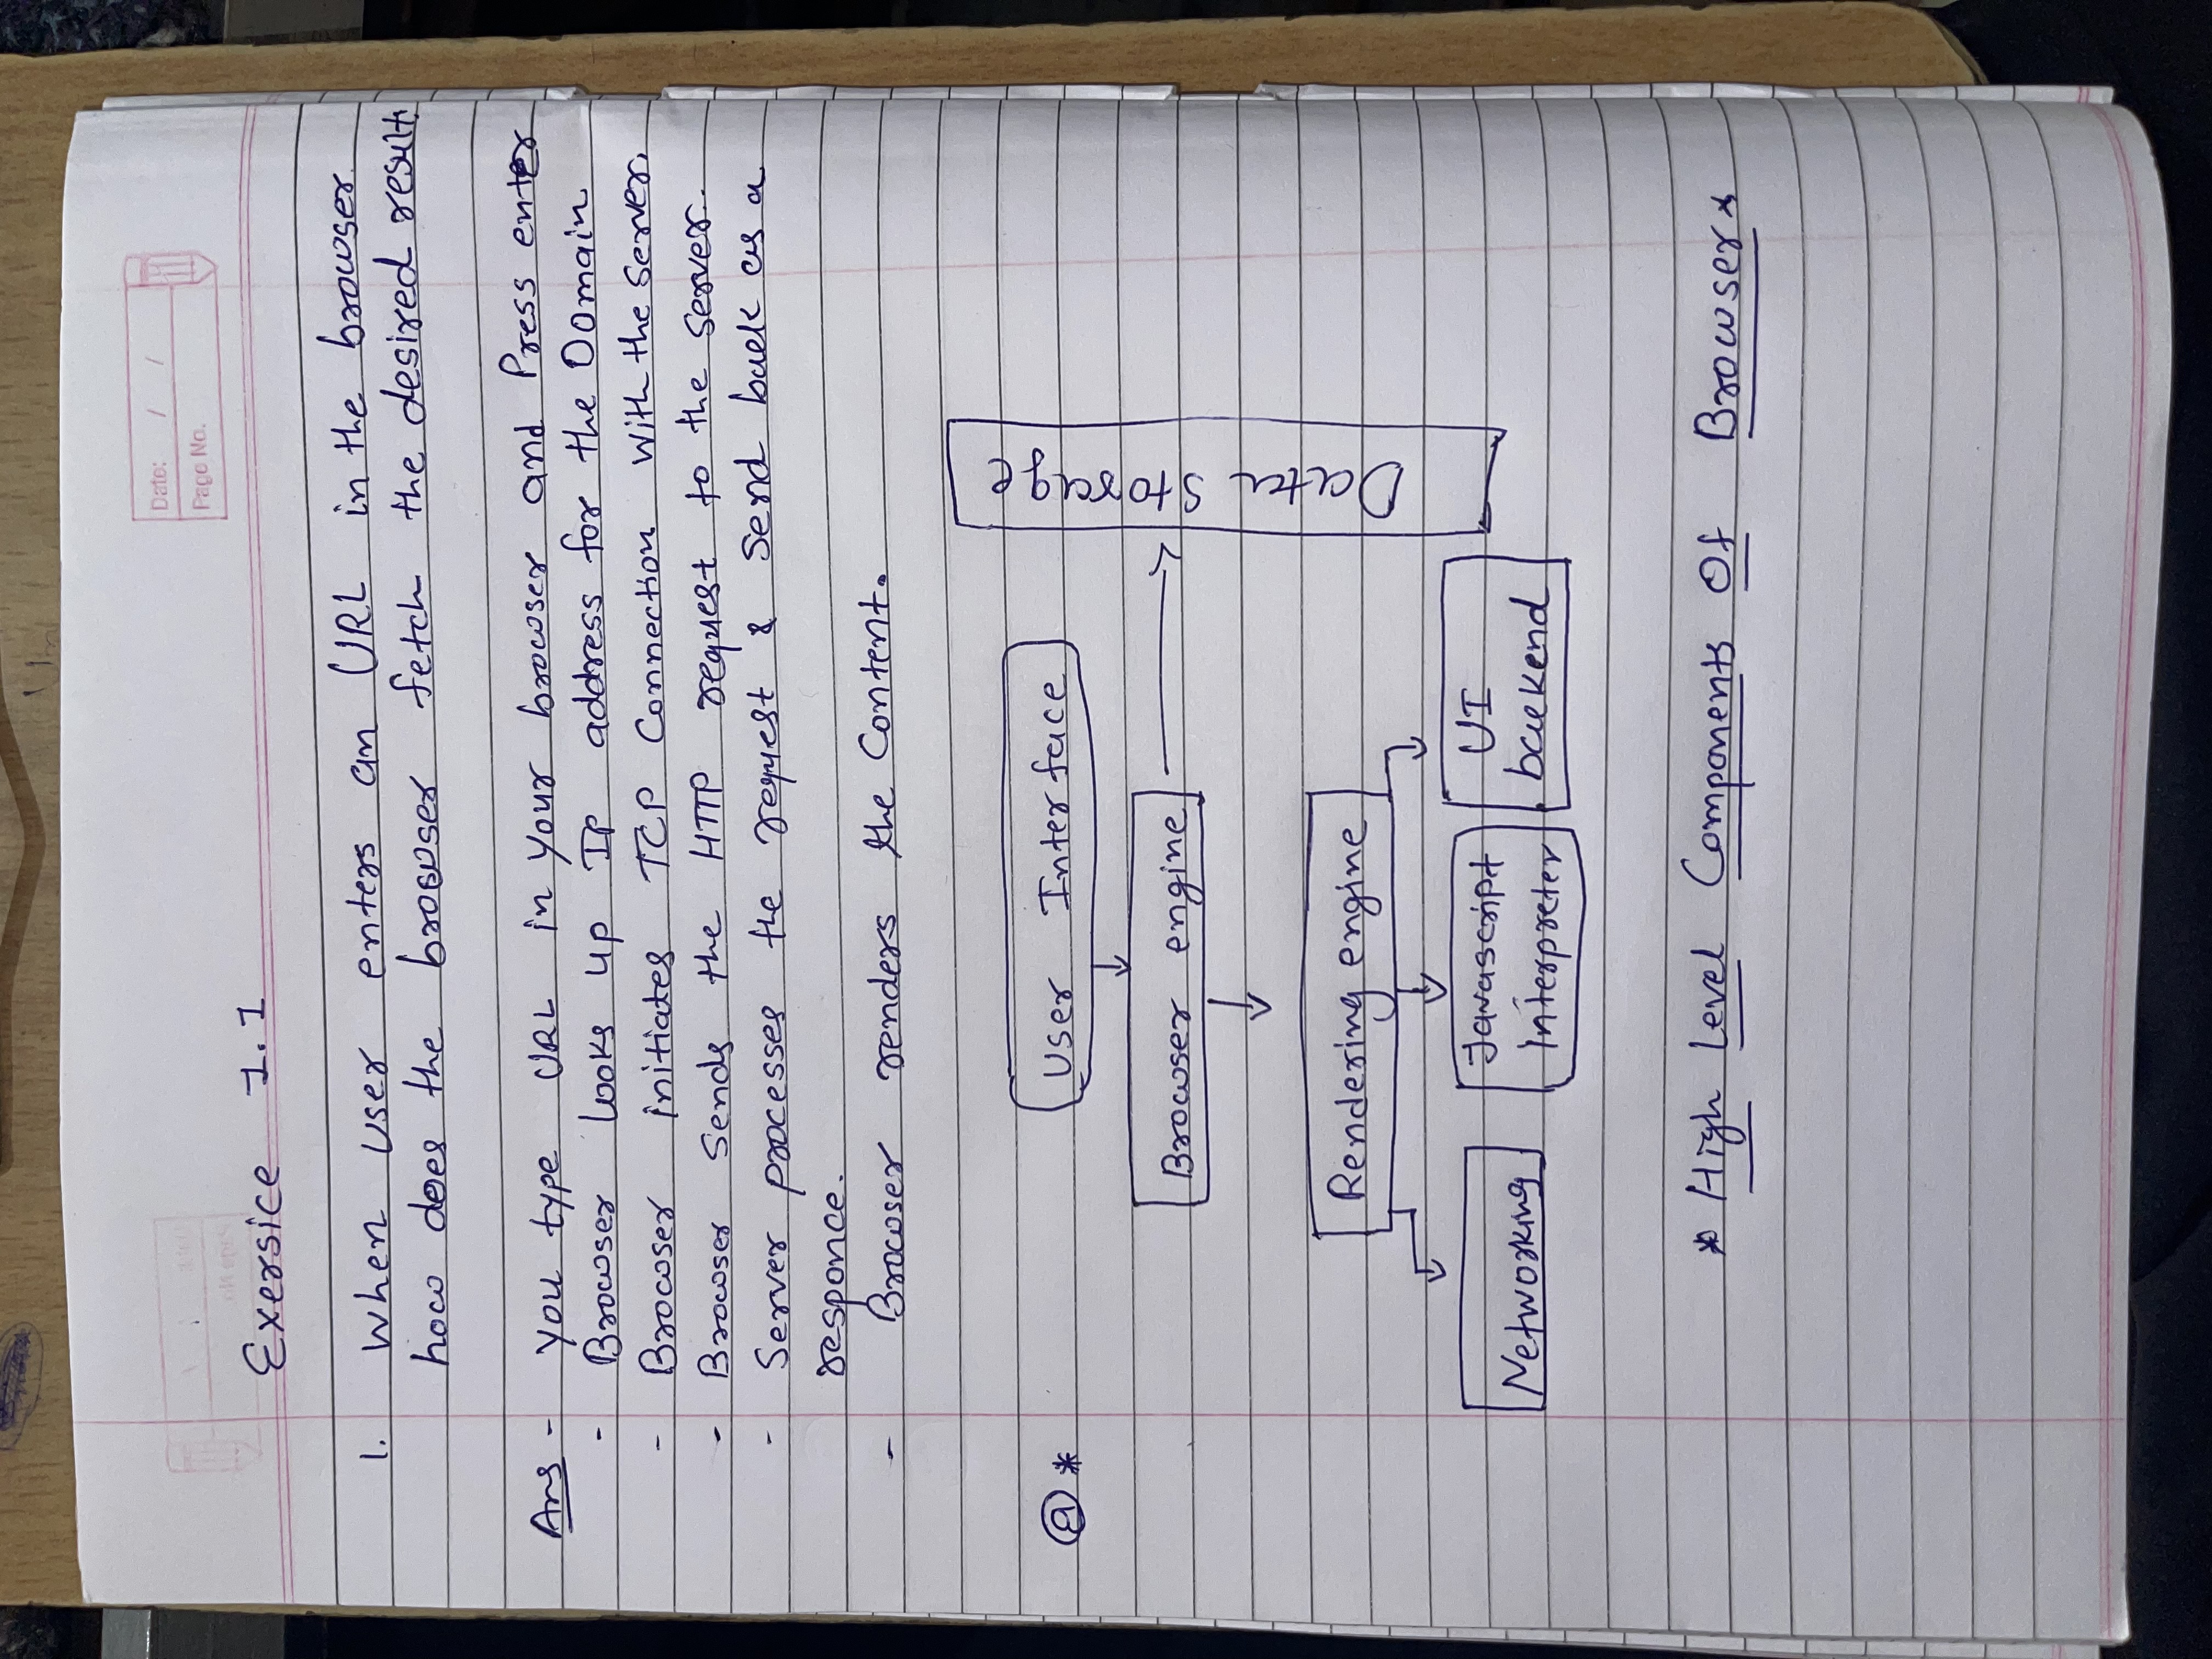 Date: / /
Page No.
Exersice 1.1
1. When user enters an URL in the browser
how does the browser fetch the desired result.
Ans - You type URL in your browser and Press enter
- Browser looks up IP address for the Domain
- Browser initiates TCP Connection with the server.
- Browser Sends the HTTP request to the server.
- Server processes the request & Send back as a
responce.
- Browser renders the Content.
a *
User Interface
Browser engine
Data Storage
Rendering engine
Networking
Javascript
Interpreter
UI
backend
* High Level Components Of Browser *